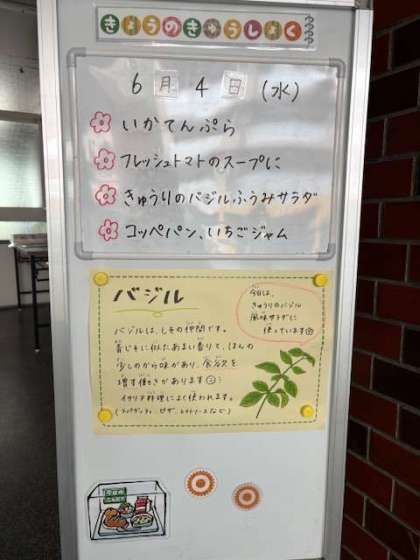 きょうのきゅうしょく
6月4日(水)
いかてんぷら
フレッシュトマトのスープに
きゅうりのバジルふうみサラダ
コッペパン、いちごジャム
バジル
今日は、
きゅうりのバジル
風味サラダに
使っています
バジルは、しその仲間です。
青じそに似たあまい香りで、ほんの
少しのから味があり、食欲を
増す働きがあります
イタリア料理によく使われます。
(スパゲッティ、ピザ、トマトソースなど)